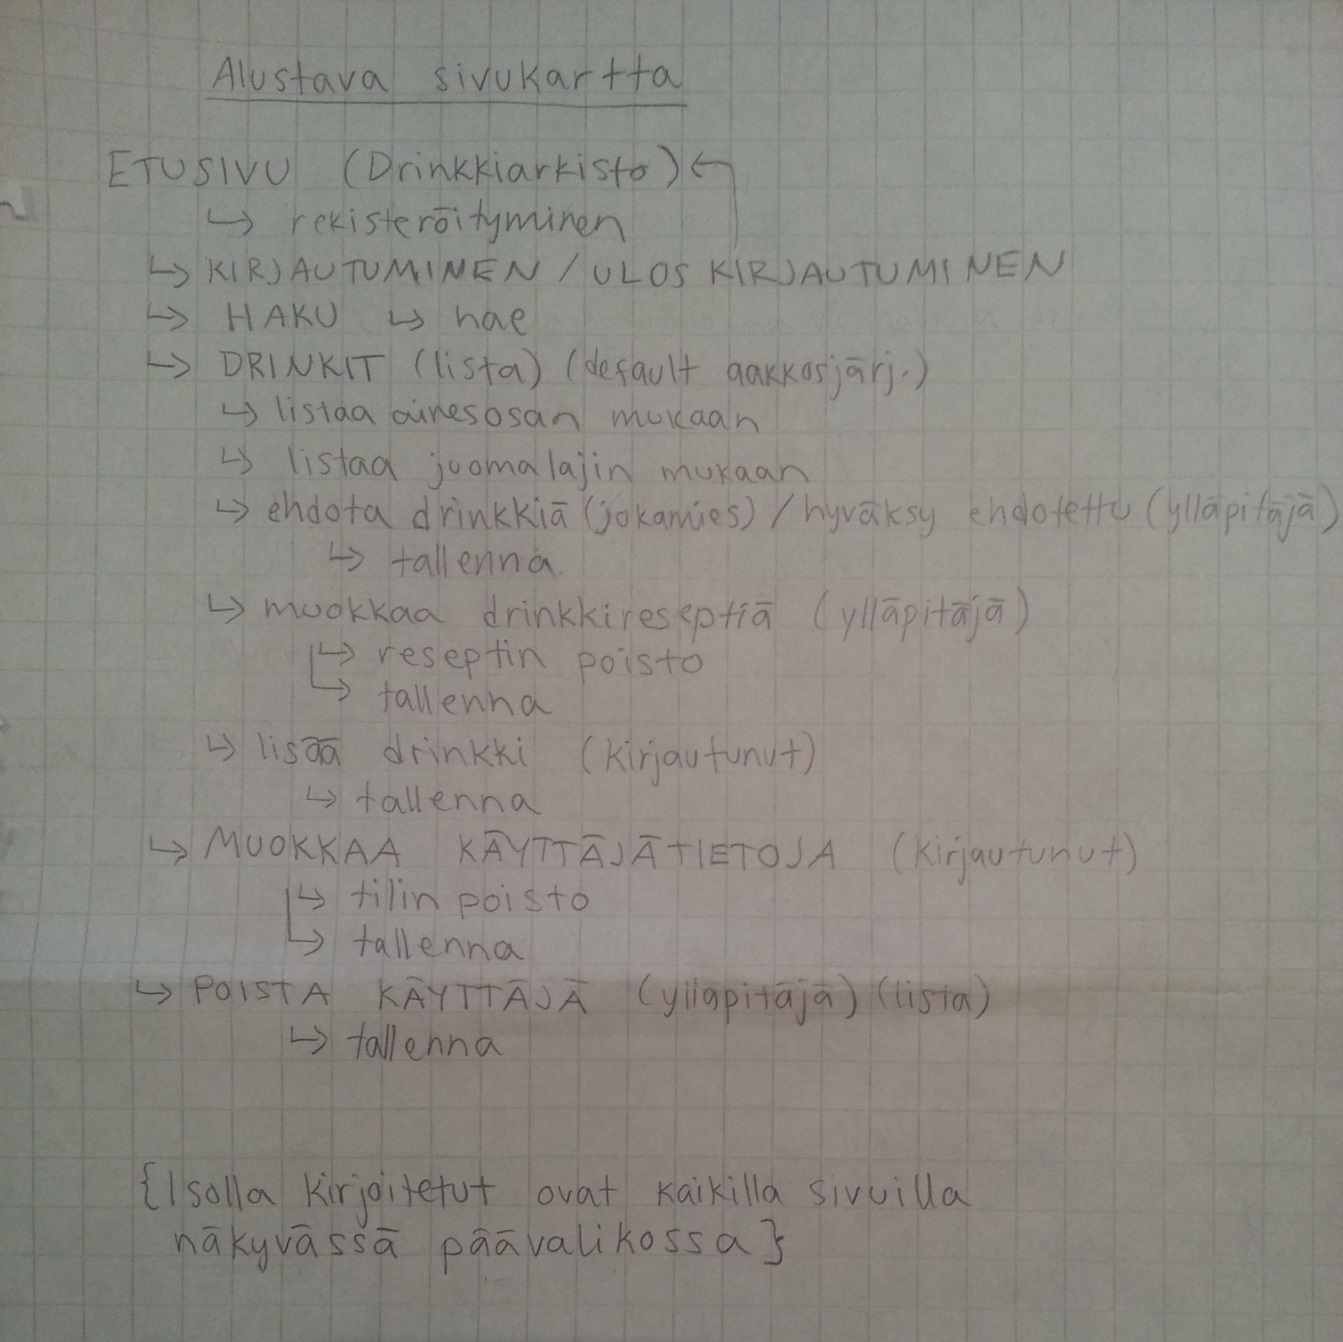 Alustava sivukartta
ETUSIVU (Drinkkiarkisto) ↩
↳ rekisteröityminen
↳ KIRJAUTUMINEN / ULOS KIRJAUTUMINEN
↳ HAKU ↳ hae
↳ DRINKIT (lista) (default aakkosjärj.)
↳ listaa ainesosan mukaan
↳ listaa juomalajin mukaan
↳ ehdota drinkkiä (jokamies) / hyväksy ehdotettu (ylläpitäjä)
↳ tallenna
↳ muokkaa drinkkireseptiä (ylläpitäjä)
↳ reseptin poisto
↳ tallenna
↳ lisää drinkki (kirjautunut)
↳ tallenna
↳ MUOKKAA KÄYTTÄJÄTIETOJA (kirjautunut)
↳ tilin poisto
↳ tallenna
↳ POISTA KÄYTTÄJÄ (ylläpitäjä) (lista)
↳ tallenna
{Isolla kirjoitetut ovat kaikilla sivuilla
näkyvässä päävalikossa}